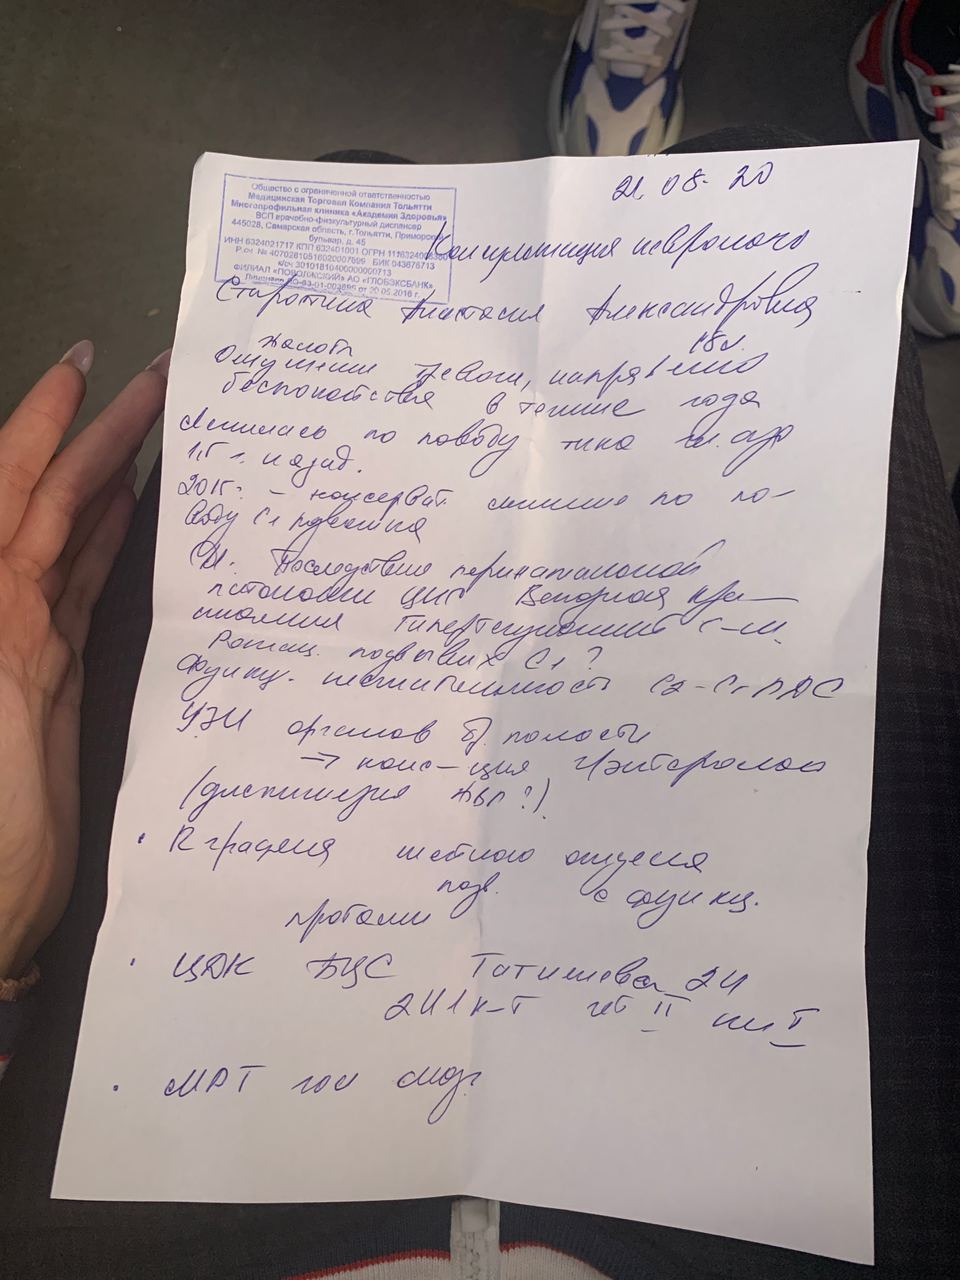 Общество с ограниченной ответственностью
Медицинская Торговая Компания Тольятти
Многопрофильная клиника «Академия Здоровья»
ВСП врачебно-физкультурный диспансер
445028, Самарская область, г.Тольятти, Приморский
бульвар, д. 45
ИНН 6324021717 КПП 632401001 ОГРН
Р.сч. № БИК 043678713
к/сч 30101810400000000713
ФИЛИАЛ «ПОВОЛЖСКИЙ» АО «ГЛОБЭКСБАНК»
Лицензия от 20.05.2016 г.
21.08.20
Консультация невролога
Анастасия Александровна
18 л.
Жалобы
Ощущение тревоги, напряжения
беспокойства в течение года
Лечилась по поводу тика
1,5 г. назад.
2015г. – консерват. лечение по по-
воду С1 подвывиха
Последствия перинатальной
патологии ЦНС Венозная
Гипертензионный с-м.
Ротац. подвывих С1?
Функц. нестабильность С2-С1 ПДС
УЗИ органов бр. полости
→ конс-ция гастроэнтеролога
(дискинезия ЖВП?)
• R графия шейного отдела
позв. с функц.
пробами
• ЦДК БЦС Татищева 24
241 к-т чет II неч I
• МРТ гол мозг